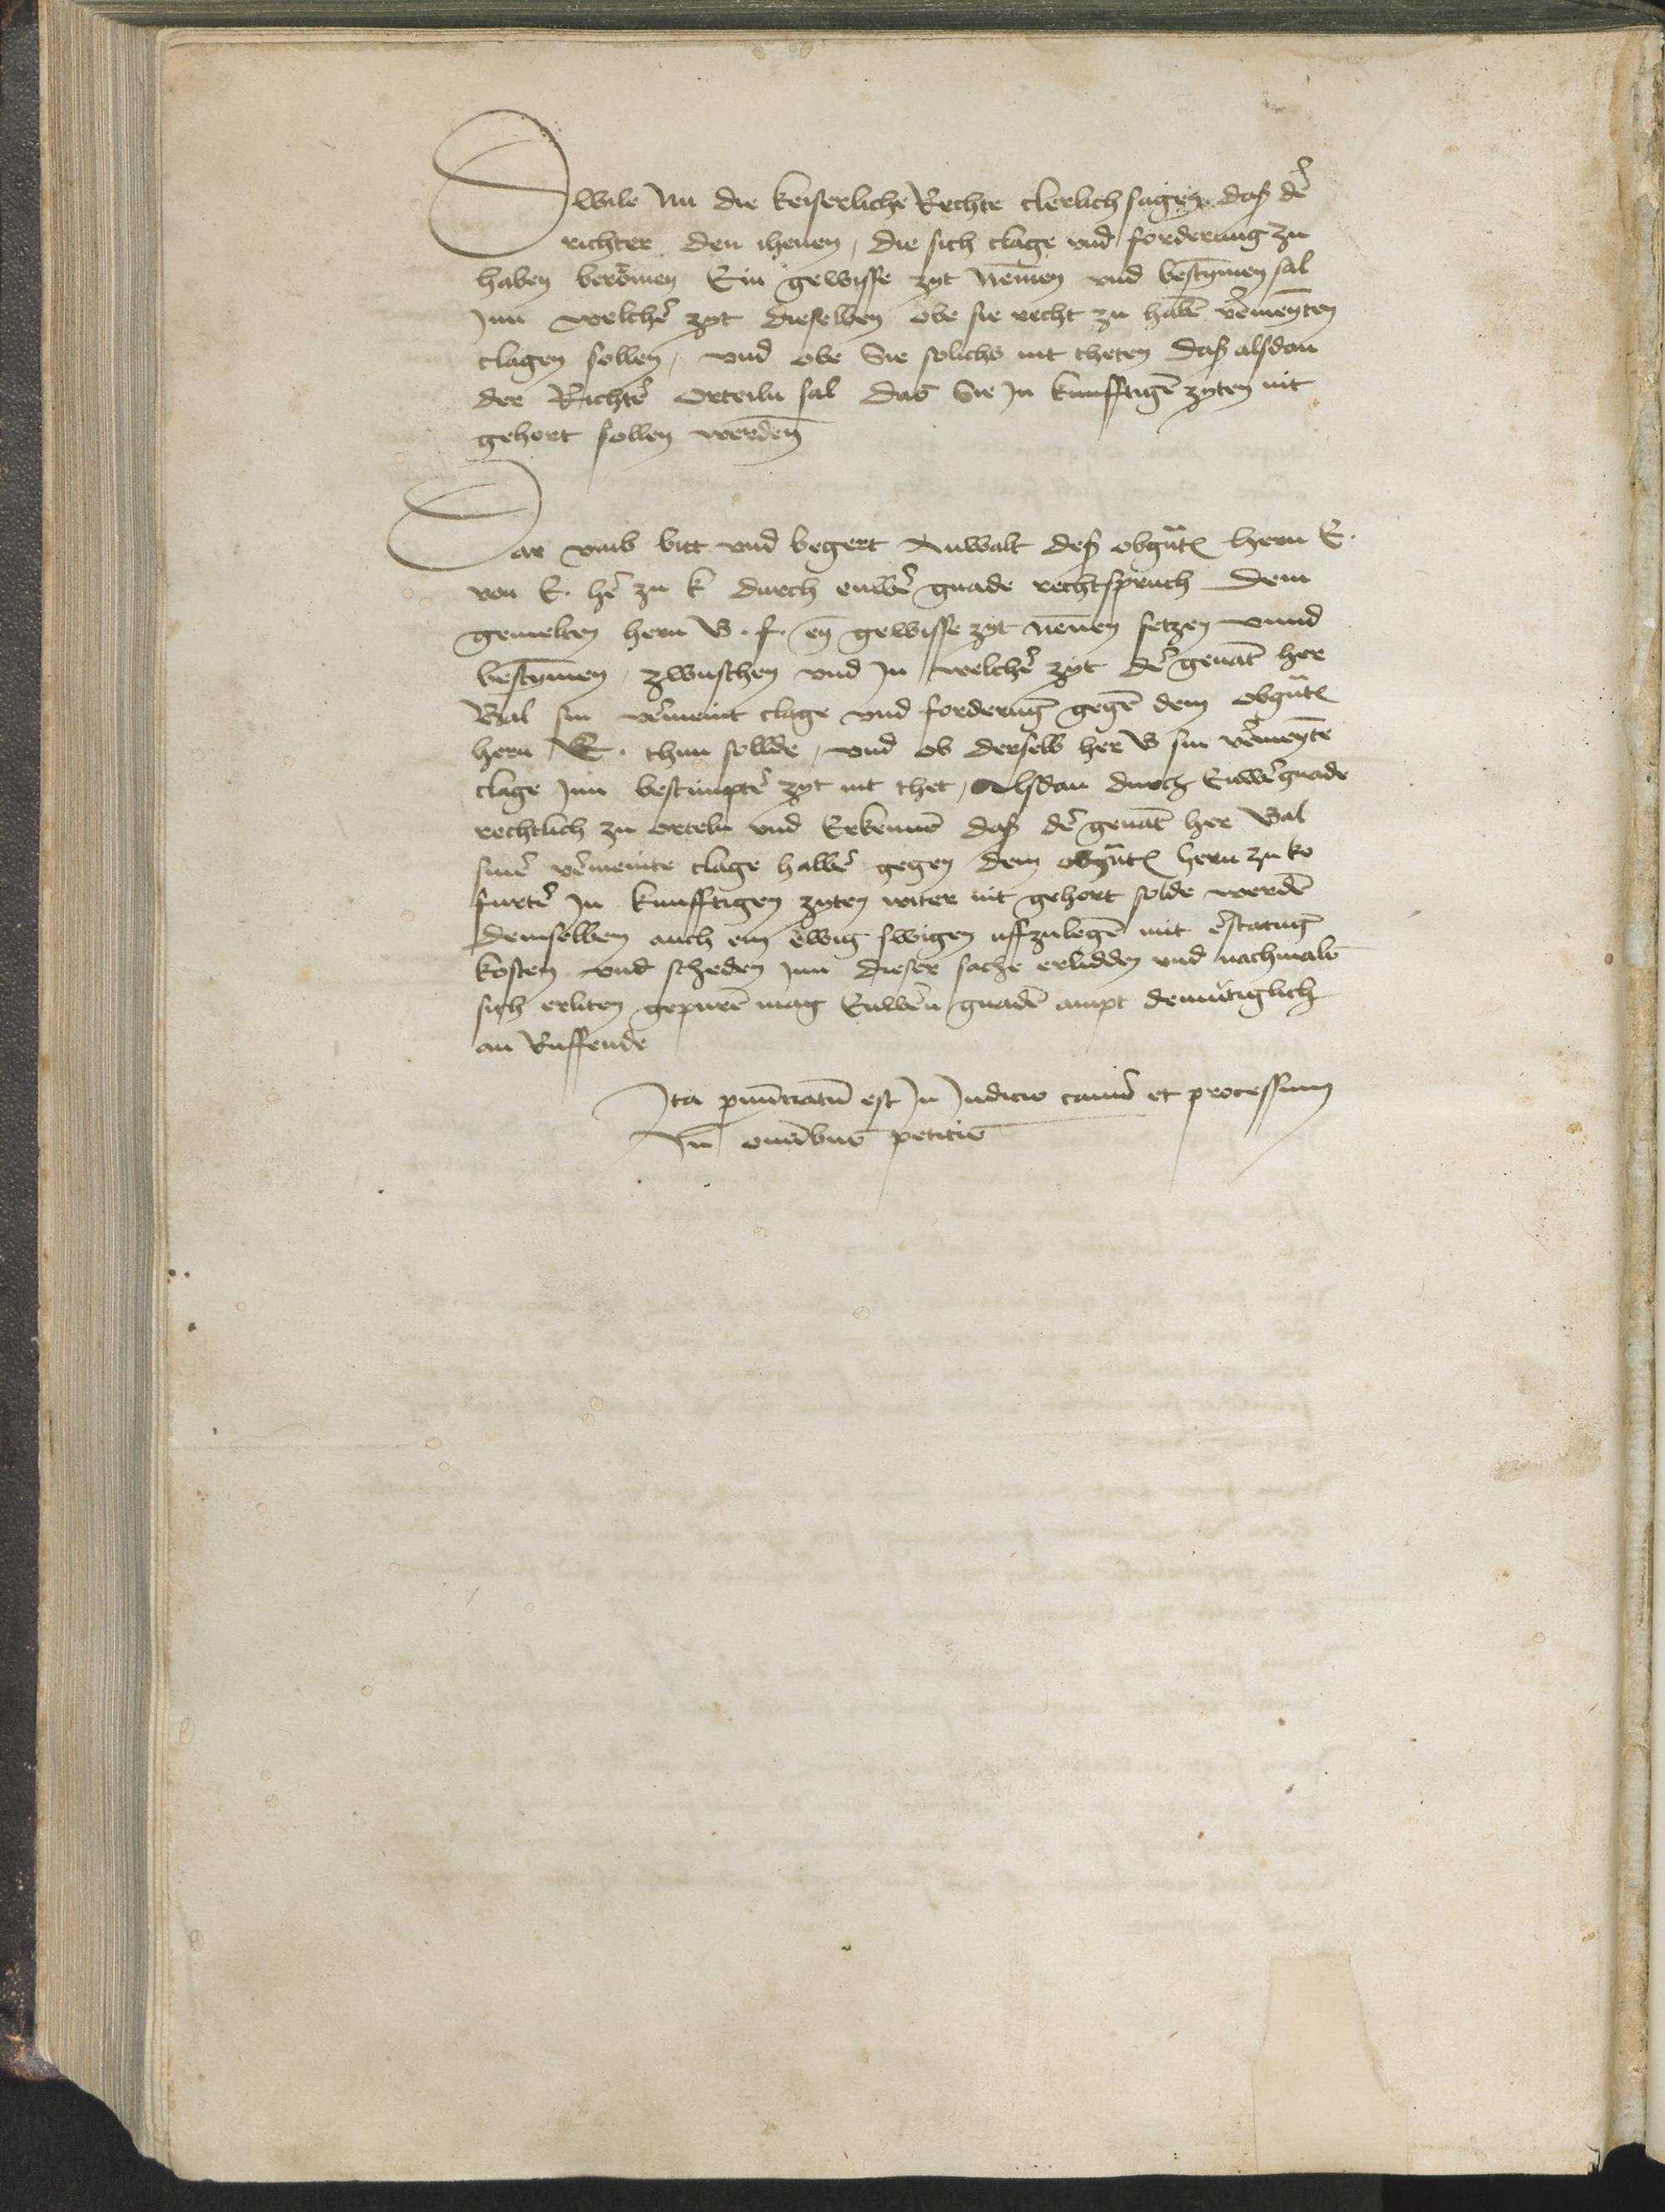 Dwile Nu die keiserliche Rechte clerlich sagen das dẽ
richter den ihenen, die sich clage vnd forderung zu
haben berömen Ein gewisse zyt nem̄en vnd bestȳmen sal
Jnn welchẽ zyt dieselben obe sie recht zu habẽ vẽmeynten
clagen sollen, vnd obe Sie solichs nit theten das alsdan
der Richtẽ Orteiln sal das Sie Jn kunfftigẽ zyten nit
gehort sollen werden
Dar vmb bitt vnd begert Anwalt des obgñtẽ hern E.
von E. hẽ zu k durch euwẽ gnade rechtspruch dem
gemelten hern B. f. eȳ gewisse zyt nennen setzen vnnd
bestȳmen, zwuschen vnd Jn welchẽ zyt dẽ genãt her
Bal sin vẽmeint clage vnd forderũg gegẽ dem obgñtẽ
hern E. thun sollde, vnd ob derselb her B sin vẽmeyntẽ
clage Jnn bestimptẽ zyt nit thet, Alsdan durch Euwẽ gnade
rechtlich zu orteln vnd Erkennẽ das dẽ genãt her Bal
sinẽ vẽmeinte clage halbẽ gegen dem obgñtẽ hern zu ko
furtẽ Jn kunfftigen zyten witer nit gehort solde werdẽ
demselben auch ein ewig swigen uffzulegẽ mit ẽstatũg
kosten vnd scheden Jnn dieser sache erlidden vnd nachmals
sich erliten gepurẽ mag Euwẽn gnadẽ ampt demütiglich
an Ruffende
Jta pnũciatũ est Jn Judicio camẽ et processum
Jn omĩbus petitis